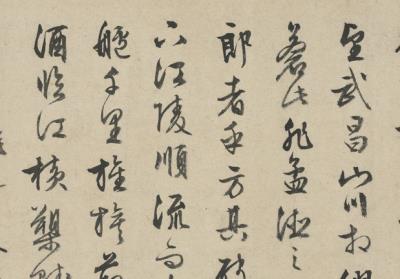 望武昌山川相繆
蒼此非孟德之
郎者乎方其破
下江陵順流而
艫千里旌旗蔽
酒臨江橫槊賦